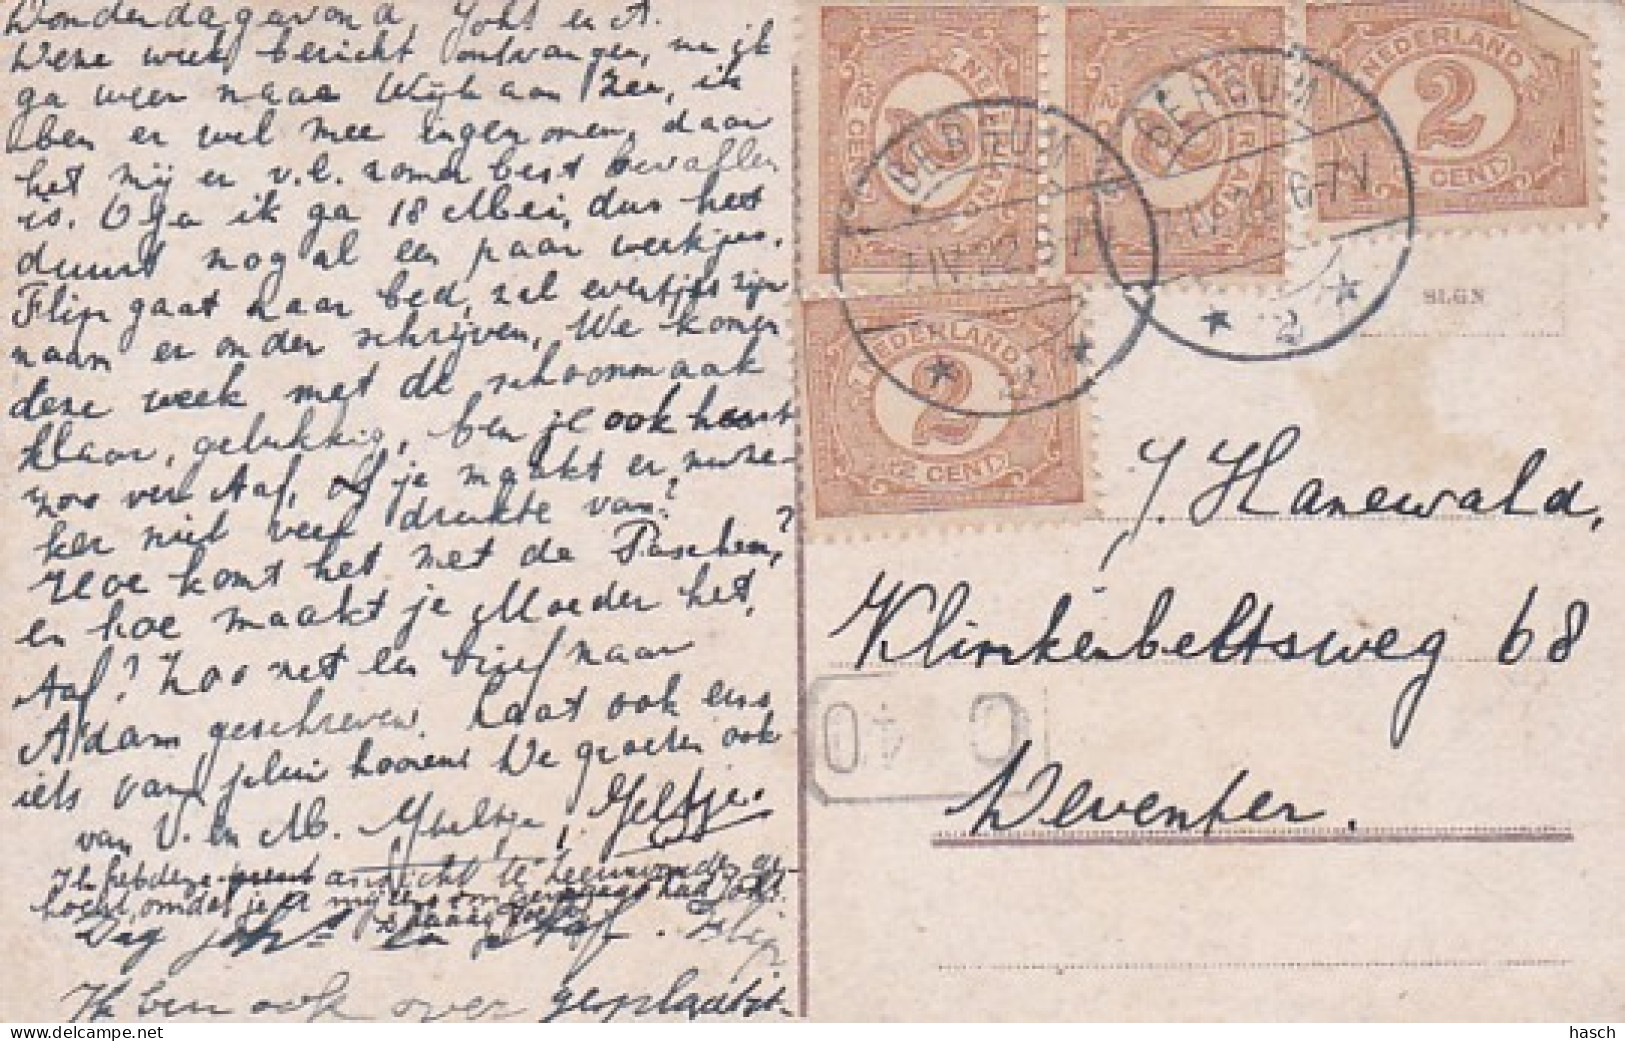 Donderdagavond, Johs en A.
Deze week bericht ontvangen, nu ik
ga weer naar Wijk aan Zee, ik
ben er wel mee ingenomen, daar
het mij er v.l. zomer best bevallen
is. O ja ik ga 18 Mei, dus het
duurt nog al een paar weekjes.
Flip gaat naar bed, zal eventjes zijn
naam er onder schrijven, We komen
deze week met de schoonmaak
klaar, gelukkig, ben je ook haast
zoo ver Aaf, of je maakt er, -
ker niet veel drukte van?
Hoe komt het met de Paschen?
en hoe maakt je Moeder het,
Aaf? Zoo net een brief naar
A'dam geschreven. Laat ook eens
iets van jelui hooren! De groeten ook
van V. en M. Geeltje.
Ik heb deze ansicht te Leeuwarden ge-
kocht, omdat je mij eens om gevraagd had Johs.
Dag Johs en Aaf. Flip
Ik ben ook over geplaatst.
NEDERLAND
2
½ CENT
NEDERLAND
2
½ CENT
NEDERLAND
2
½ CENT
NEDERLAND
2
½ CENT
BERGUM
7.IV.22 6-7V
2
BERGUM
7.IV.22 6-7V
2
SLGN
J. Hanewald,
Klinkenbeltsweg 68
C 40
Deventer.
hasch